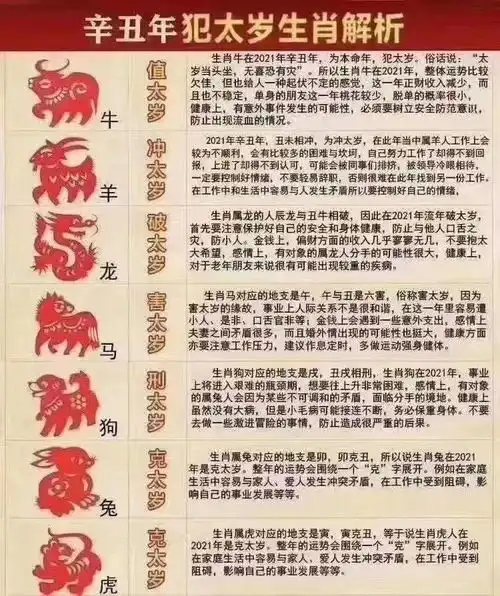 辛丑年 犯太岁生肖解析
牛
值太岁
生肖牛在2021年辛丑年，为本命年，犯太岁。俗话说：“太
岁当头坐，无喜恐有灾”。所以生肖牛在2021年，整体运势比较
欠佳，但也给人一种起伏不定的感觉，这一年正财收入减少，而
且也不稳定，单身的朋友这一年桃花较少，脱单的概率很小，
健康上，有意外事件发生的可能性，必须要树立安全防范意识，
防止出现流血的情况。
羊
冲太岁
2021年辛丑年，丑未相冲，为冲太岁，在此年当中属羊人工作上会
较为不顺利，会有比较多的困难与坎坷，自己努力工作了却得不到回
报，上进了却得不到认可，可能会被同事们排挤，被领导冷眼相待，
一定要控制好情绪，不要轻易辞职，否则很难在此年找到另一份工作。
在工作中和生活中容易与人发生矛盾所以要控制好自己的情绪，
龙
破太岁
生肖属龙的人辰龙与丑牛相破，因此在2021年流年破太岁，
首先要注意保护好自己的安全和身体健康，防止与他人口舌之
灾，防小人。金钱上，偏财方面的收入几乎寥寥无几，不要抱太
大希望，感情上，有对象的属龙人分手的可能性很大，健康上，
对于老年朋友来说很有可能出现较重的疾病。
马
害太岁
生肖马对应的地支是午，午与丑是六害，俗称害太岁，因为
害太岁的缘故，事业上人际关系不是很和谐，在这一年里容易遭
小人、是非、口舌官非等；金钱上会遇到一些意外支出，感情上
夫妻之间矛盾很多，而且婚外情出现的可能性也挺大，健康方面
亦要注意工作压力，建议作息定时，多做运动强身健体。
狗
刑太岁
生肖狗对应的地支是戌，丑戌相刑，生肖狗在2021年，事业
上将进入艰难的瓶颈期，想要往上升非常困难，感情上，有对象
的属兔人会因为某些不可调和的矛盾，面临分手的境地。健康上
虽然没有大病，但是小毛病可能接连不断，务必保重身体。不要
去做一些激进冒险的事情，防止造成很严重的后果。
兔
克太岁
生肖属兔对应的地支是卯，卯克丑，所以说生肖兔在2021
年是克太岁。整年的运势会围绕一个“克”字展开。例如在家庭
生活中容易与家人、爱人发生冲突矛盾，在工作中受到阻碍，影
响自己的事业发展等等。
虎
克太岁
生肖属虎对应的地支是寅，寅克丑，等于说生肖虎人在
2021年是克太岁。整年的运势会围绕一个“克”字展开。例如
在家庭生活中容易与家人、爱人发生冲突矛盾，在工作中受到
阻碍，影响自己的事业发展等等。